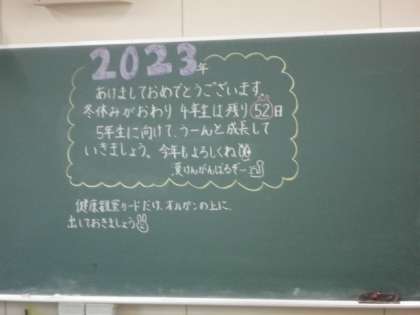 2023年
あけましておめでとうございます。
冬休みがおわり 4年生は残り52日
5年生に向けて、うーんと成長して
いきましょう。今年もよろしくね
健康観察カードだけ、オルガンの上に
出しておきましょう